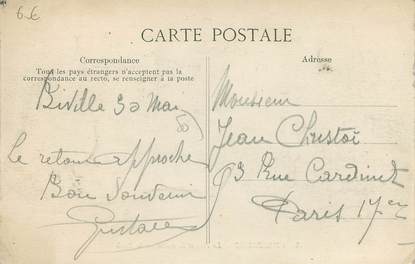 6€
CARTE POSTALE
Correspondance
Tous les pays étrangers n'acceptent pas la
correspondance au recto, se renseigner à la poste
Biville 30 Mai
le retour approche
Bon Souvenir
Gustave
Adresse
Monsieur
Jean Christoï
93 Rue Cardinet
Paris 17e